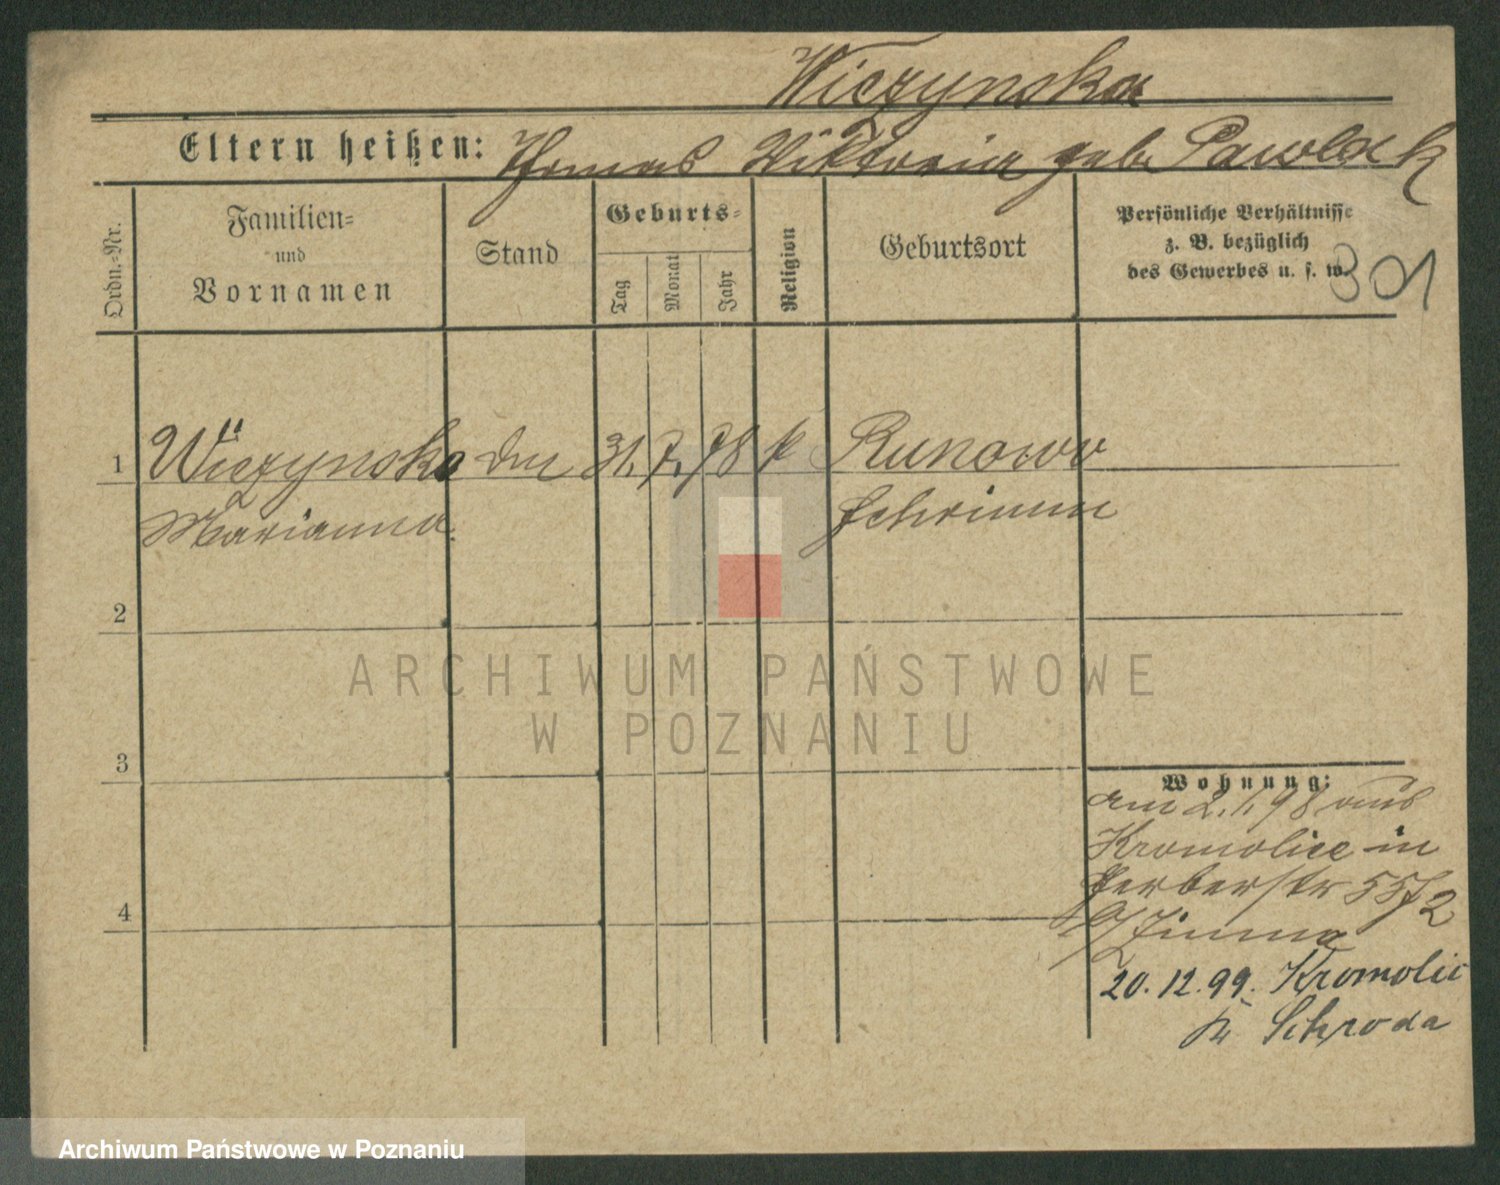 Wiczynska
Eltern heißen: Thomas Wiktoria geb. Pawlak
Ordn.-Nr.
Familien-
und
Vornamen
Stand
Geburts-
Tag
Monat
Jahr
Religion
Geburtsort
Persönliche Verhältnisse
z. B. bezüglich
des Gewerbes u. s. w.
301
1 Wiczynska 31. 7. 78 k Runowo
Marianna. Schrimm
2
3
4
Wohnung:
am 2. 1. 98 aus
Kromolice in
Gerberstr 55
20. 12. 99. Kromolic
Kr Schroda
ARCHIWUM PAŃSTWOWE
W POZNANIU
Archiwum Państwowe w Poznaniu